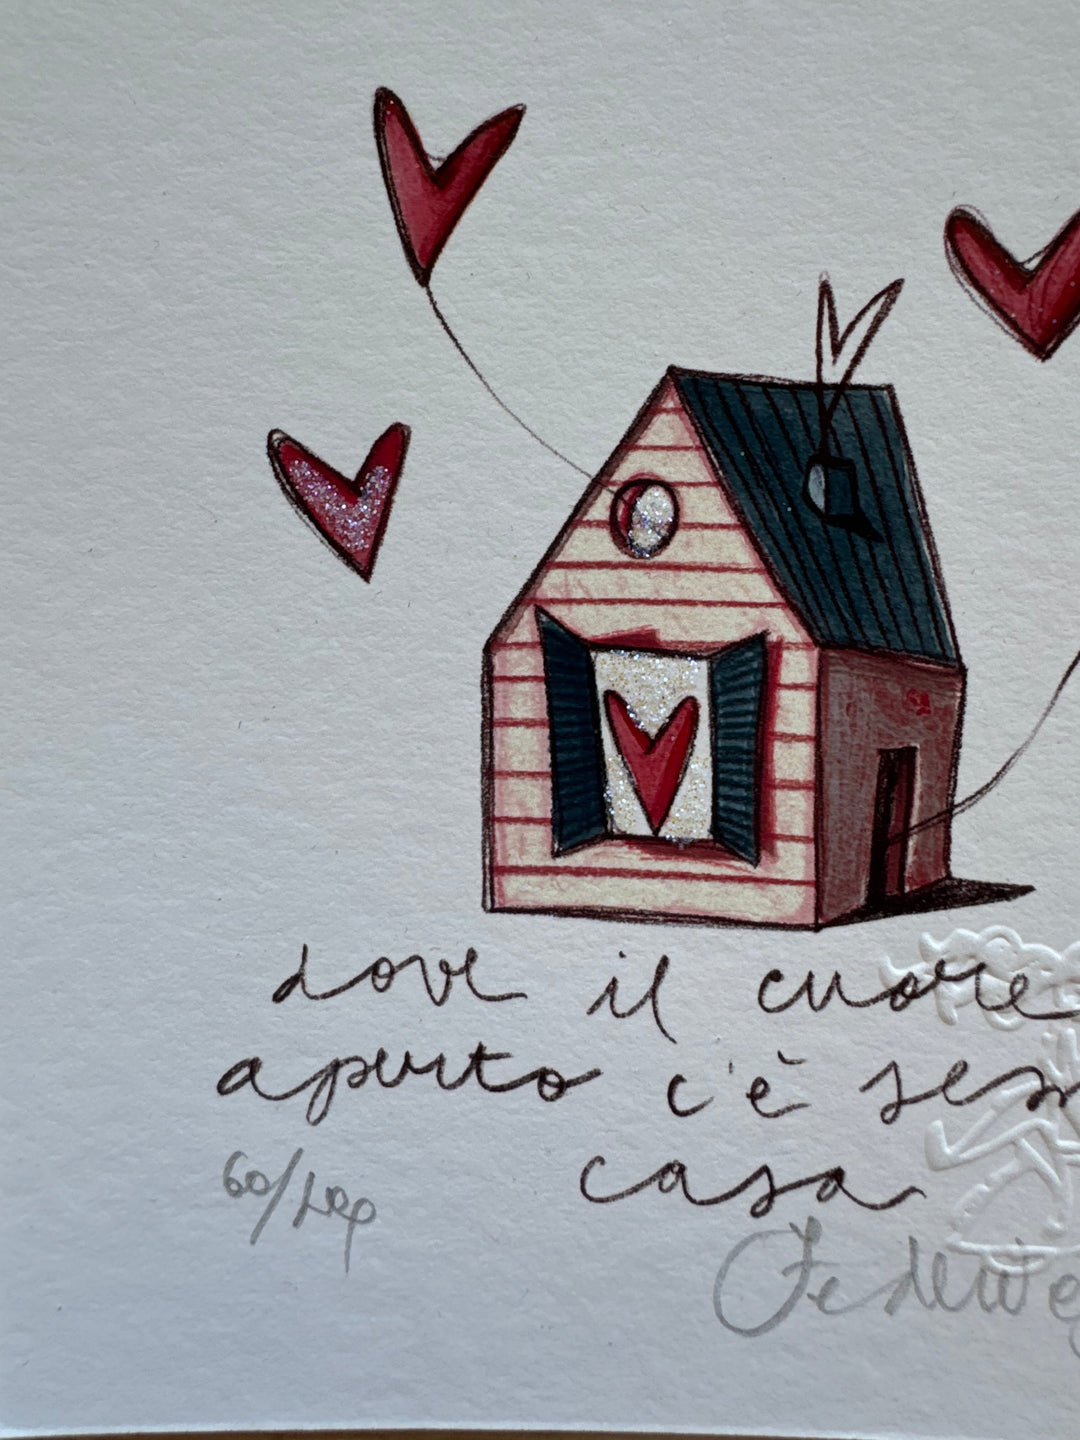 dove il cuore
aperto c'è sem
casa
60/
Federica